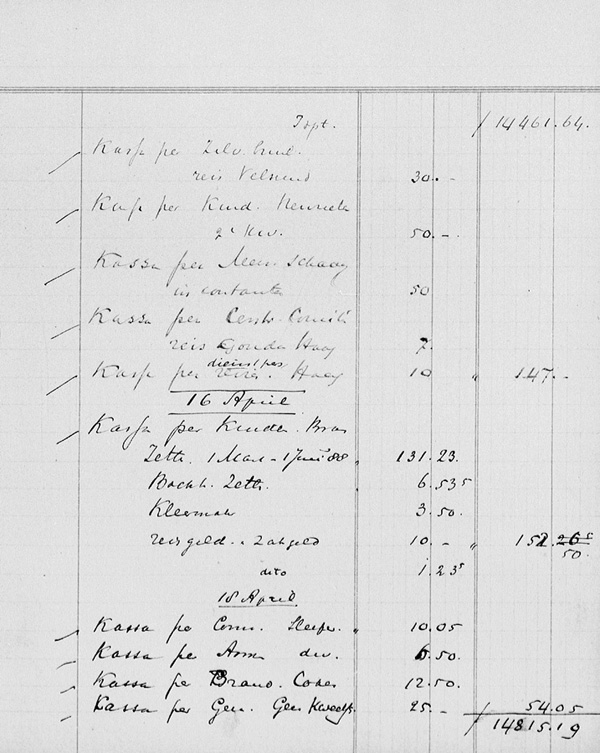 Trpt. / 14461.64.
Kassa per Zilv.
reis Velsend 30.-
Kassa per Kind. Henrieta
2e Kw. 50.-
Kassa per Schaay
in contanten 50
Kassa per Centr. Comité
reis Gouda Haag 7.
dienst per
Kassa per reis. Haag 10 " 147.-
16 April
Kassa per Kinder. Bram
Zeth. 1 Maart - 1 Juni 88 " 131.23.
Bockh. Zeth. 6.535
Kleermak 3.50.
reisgeld. 10.- " 152.265
50.
dito 1.235
18 April
Kassa pe Comm. Sleep. " 10.05
Kassa pe Arm div. 6.50.
Kassa pe Brand. Codes 12.50.
Kassa per Gen. Gen 25.- / 54.05
/ 14815.19